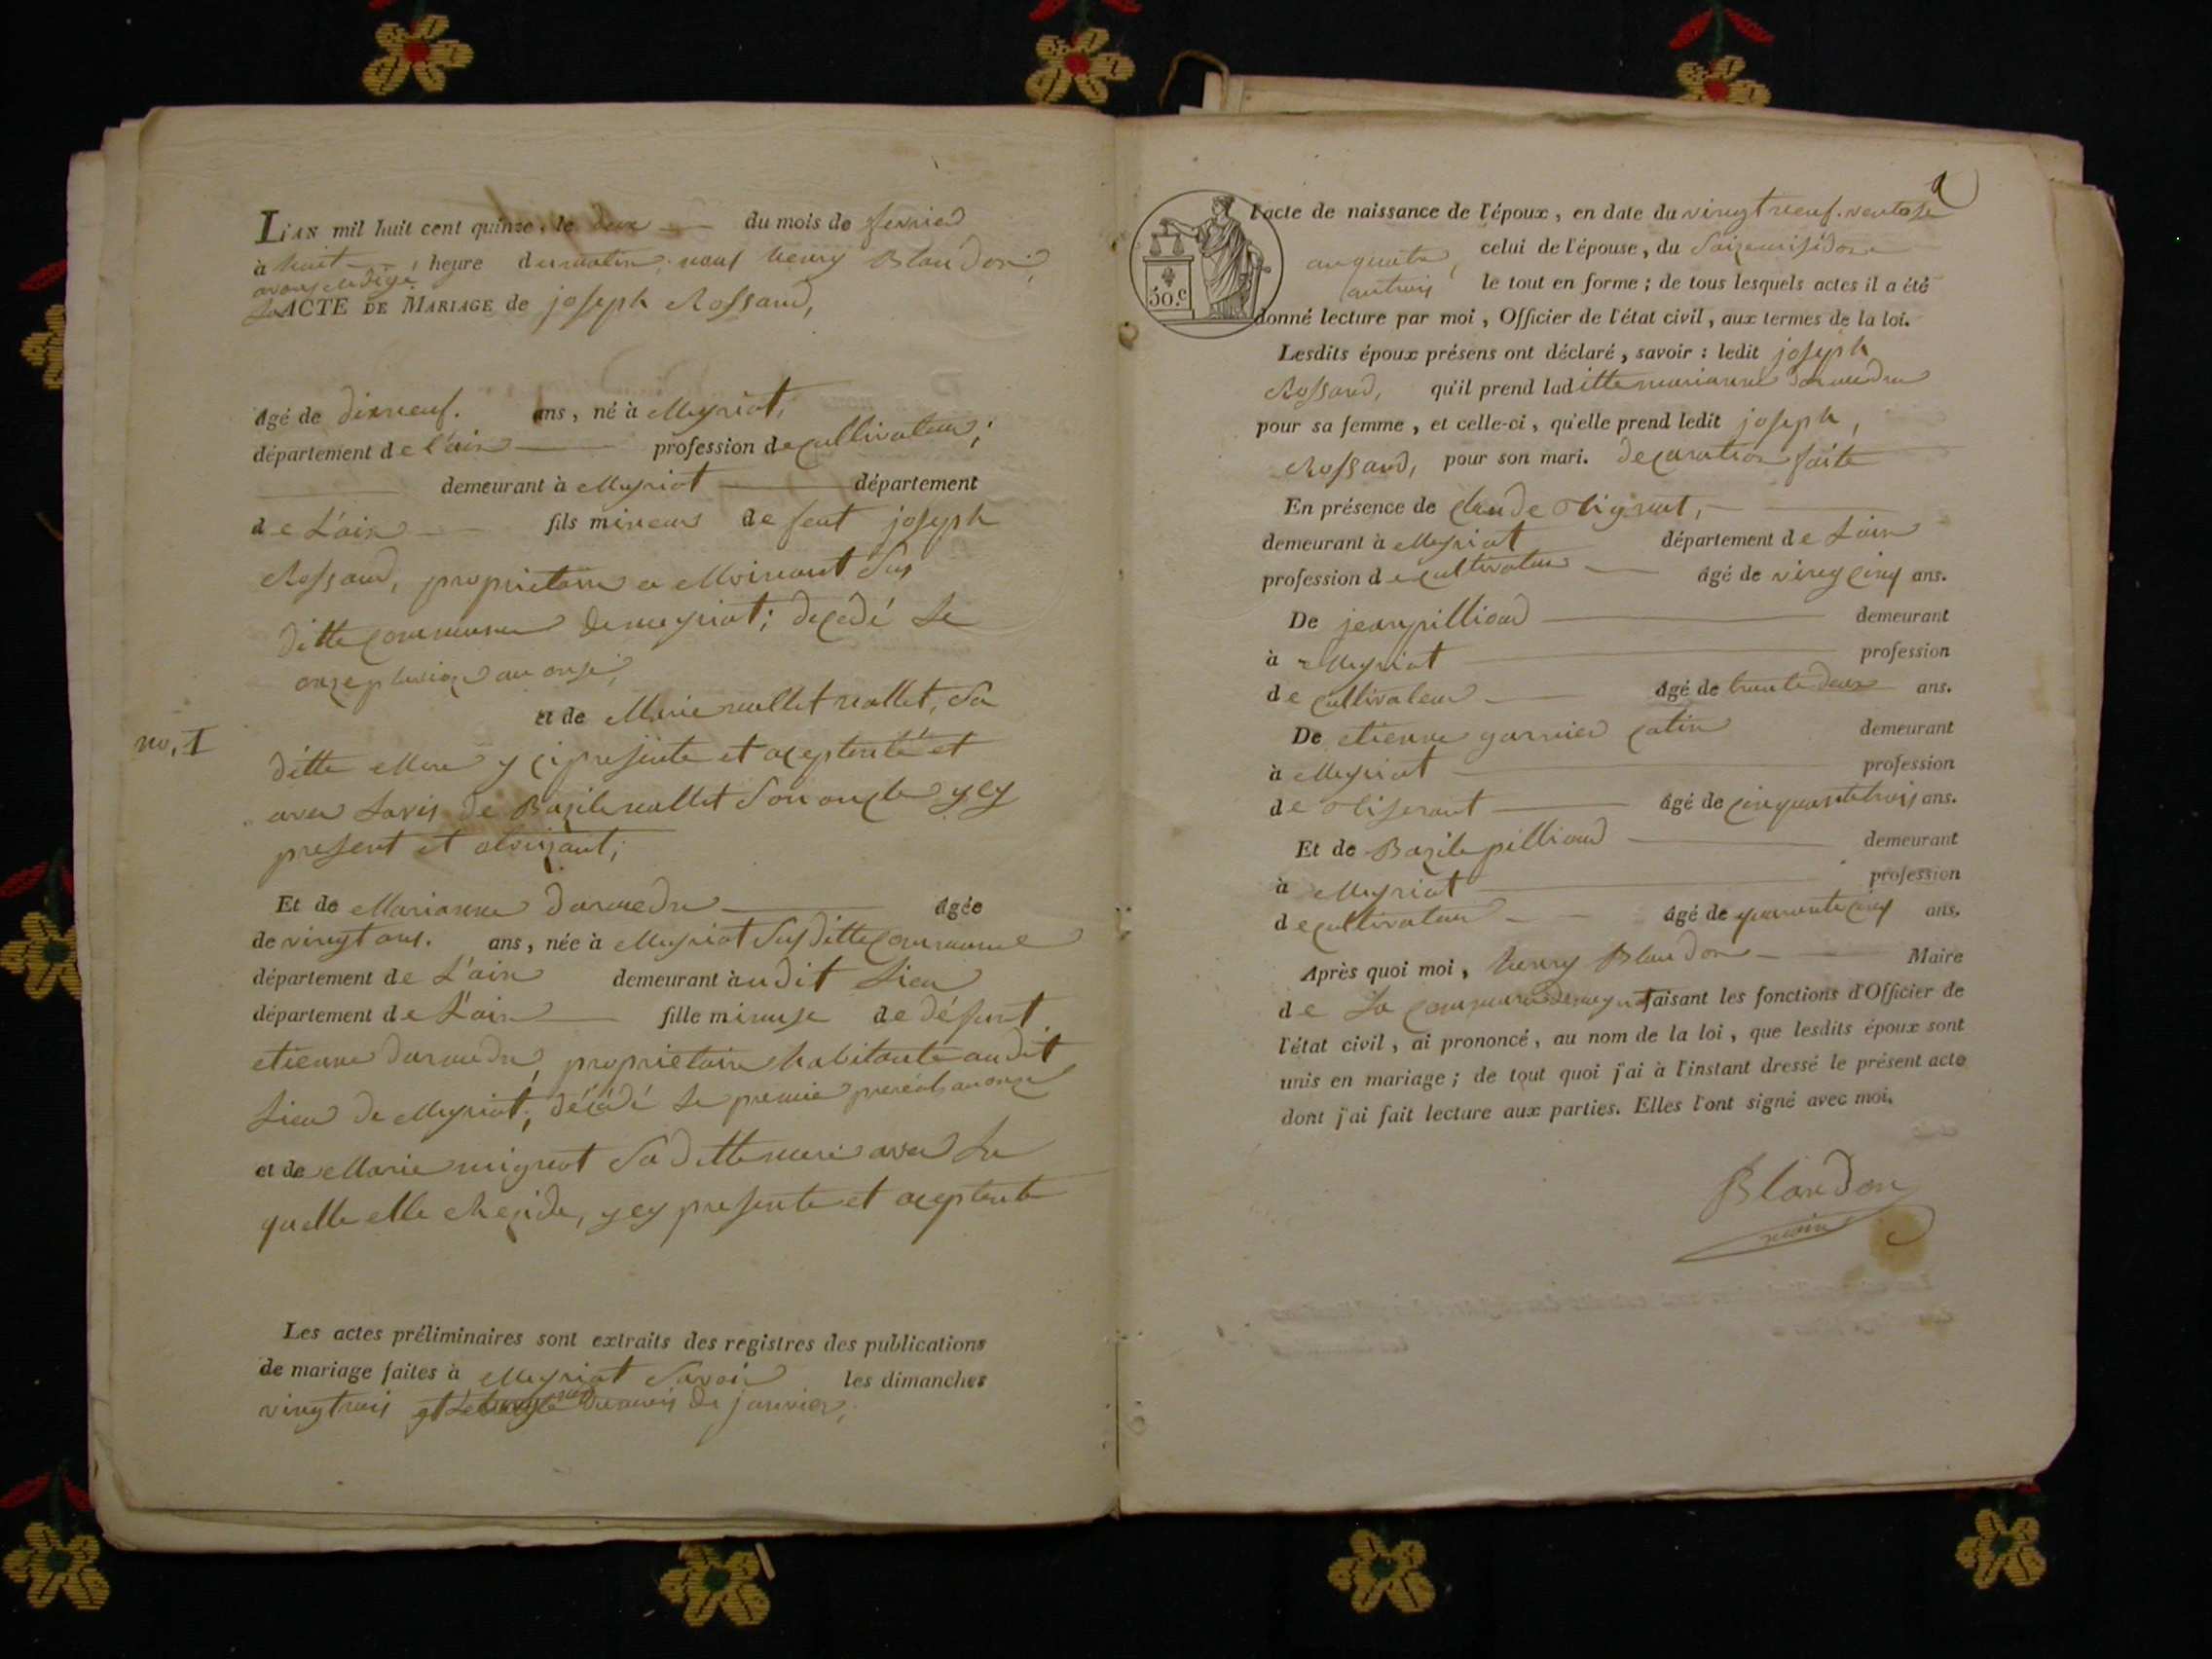 L'an mil huit cent quinze, le deux du mois de fevrier
à huit heure du matin, nous henry Blandon,
avons redigé
L'ACTE DE MARIAGE de joseph Rossand,
âgé de dixneuf. ans, né à Meyriat,
département de l'ain profession de cultivateur,
demeurant à Meyriat département
de L'ain fils mineur de feut joseph
Rossand, proprietaire a Moinant Sus
ditte commune de meyriat; decedé le
onze pluviose an onze,
et de Marie mallet mallet, Sa
no, I
ditte Mere y ci presente et aceptente et
avec Lavis de Bazile mallet Son oncle y cy
present et
Et de Marianne Darmedru âgée
de vingt ans. ans, née à Meyriat Susditte commune
département de L'ain demeurant audit Lieu
département de L'ain fille mineuse de défunt
etienne darmedru, proprietaire habitante audit
Lieu de Meyriat, décédé le premie prereal an onze
et de Marie mignot Sa ditte mere avec La
quelle elle Rezide, y cy presente et aceptente
Les actes préliminaires sont extraits des registres des publications
de mariage faites à Meyriat Savoir les dimanches
vingt trois du mois de janvier,
l'acte de naissance de l'époux, en date du vingt neuf. ventose
an quatre, celui de l'épouse, du
an trois le tout en forme; de tous lesquels actes il a été
50.c
donné lecture par moi, Officier de l'état civil, aux termes de la loi.
Lesdits époux présens ont déclaré, savoir: ledit joseph
Rossand, qu'il prend laditte marianne darmedru
pour sa femme, et celle-ci, qu'elle prend ledit joseph,
Rossand, pour son mari. decaration faite
En présence de Claude
demeurant à Meyriat département de Lain
profession de cultivateur âgé de vingcinq ans.
De jean pilliond demeurant
à Meyriat profession
de cultivateur âgé de trente deux ans.
De etienne garnier catin demeurant
à Meyriat profession
de Tiserant âgé de cinquante trois ans.
Et de Bazile pilliond demeurant
à Meyriat profession
de cultivateur âgé de quarente cinq ans.
Après quoi moi, henry Blandon Maire
de La commune de meyriat faisant les fonctions d'Officier de
l'état civil, ai prononcé, au nom de la loi, que lesdits époux sont
unis en mariage; de tout quoi j'ai à l'instant dressé le présent acte
dont j'ai fait lecture aux parties. Elles l'ont signé avec moi.
Blandon
maire